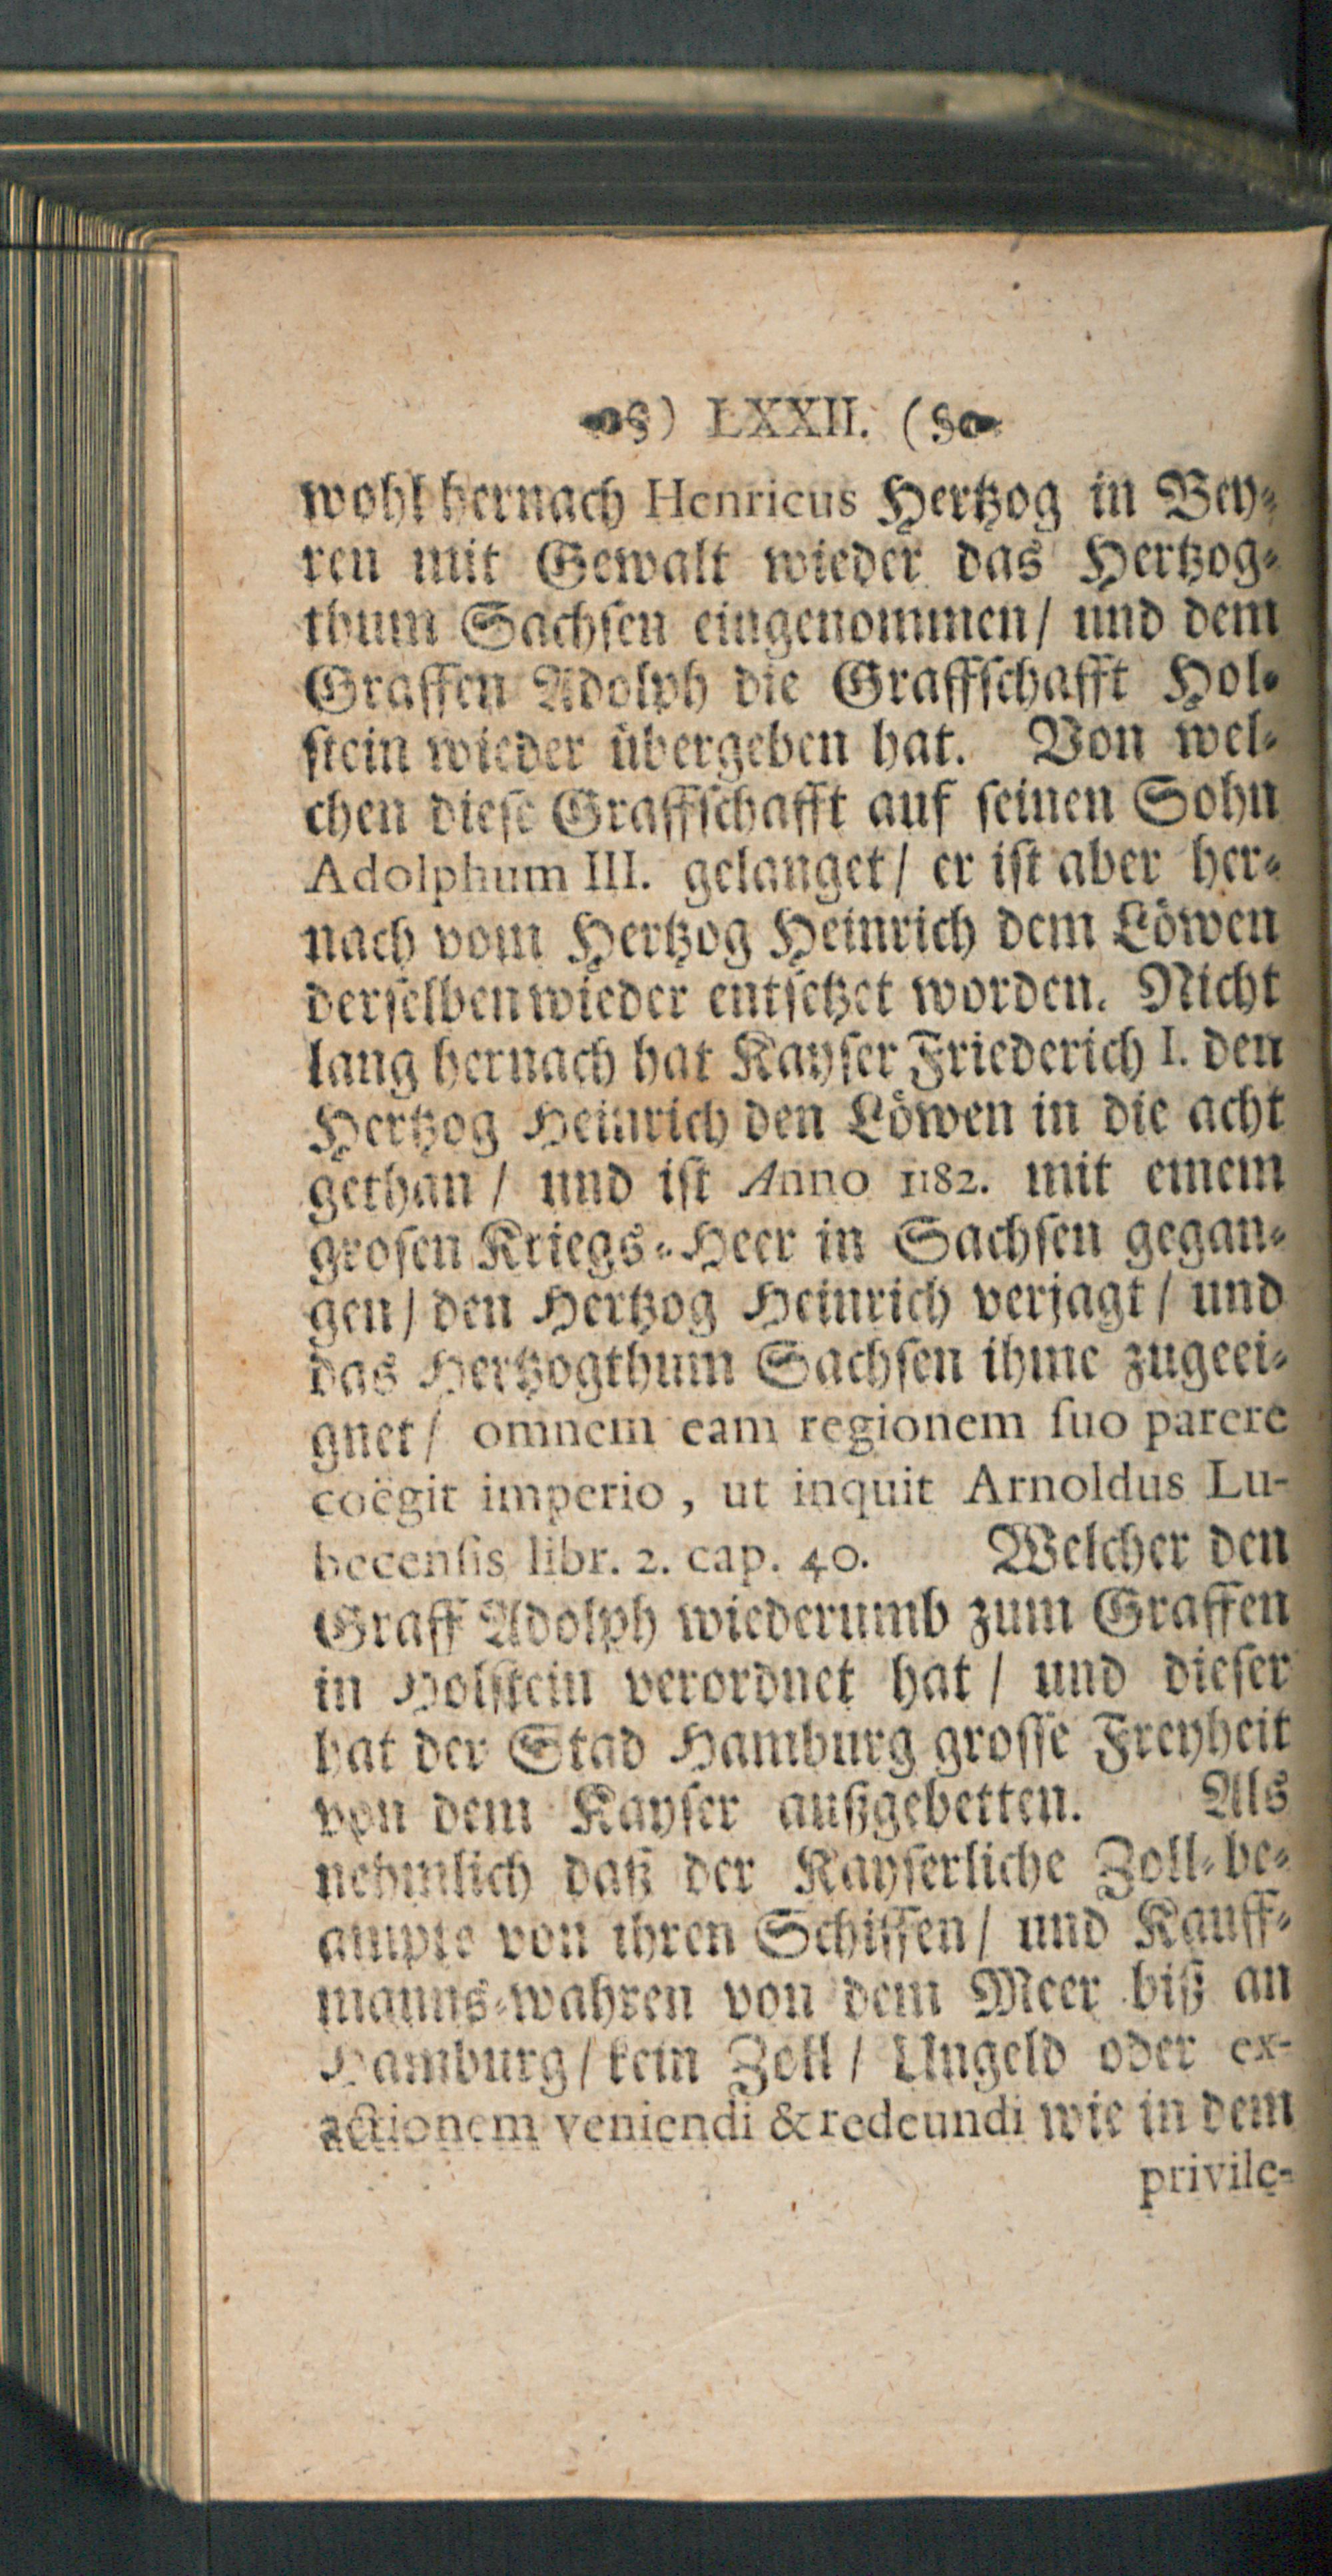 ) LXXII. (
wohl hernach Henricus Hertzog in Bey-
ren mit Gewalt wieder das Hertzog-
thum Sachsen eingenommen/ und dem
Graffen Adolph die Graffschafft Hol-
stein wieder übergeben hat. Von wel-
chen diese Graffschafft auf seinen Sohn
Adolphum III. gelanget/ er ist aber her-
nach vom Hertzog Heinrich dem Löwen
derselben wieder entsetzet worden. Nicht
lang hernach hat Kayser Friederich I. den
Hertzog Heinrich den Löwen in die acht
gethan / und ist Anno 1182. mit einem
grosen Kriegs-Heer in Sachsen gegan-
gen/ den Hertzog Heinrich verjagt / und
das Hertzogthum Sachsen ihme zugeei-
gnet/ omnem eam regionem ſuo parere
coëgit imperio, ut inquit Arnoldus Lu-
becenſis libr. 2. cap. 40. Welcher den
Graff Adolph wiederumb zum Graffen
in Holstein verordnet hat / und dieser
hat der Stad Hamburg grosse Freyheit
von dem Kayser außgebetten. Als
nehmlich daß der Kayserliche Zoll-be-
ampte von ihren Schiffen/ und Kauff-
manns-wahren von dem Meer biß an
Hamburg/ kein Zoll / Ungeld oder ex-
actionem veniendi & redeundi wie in dem
privile-